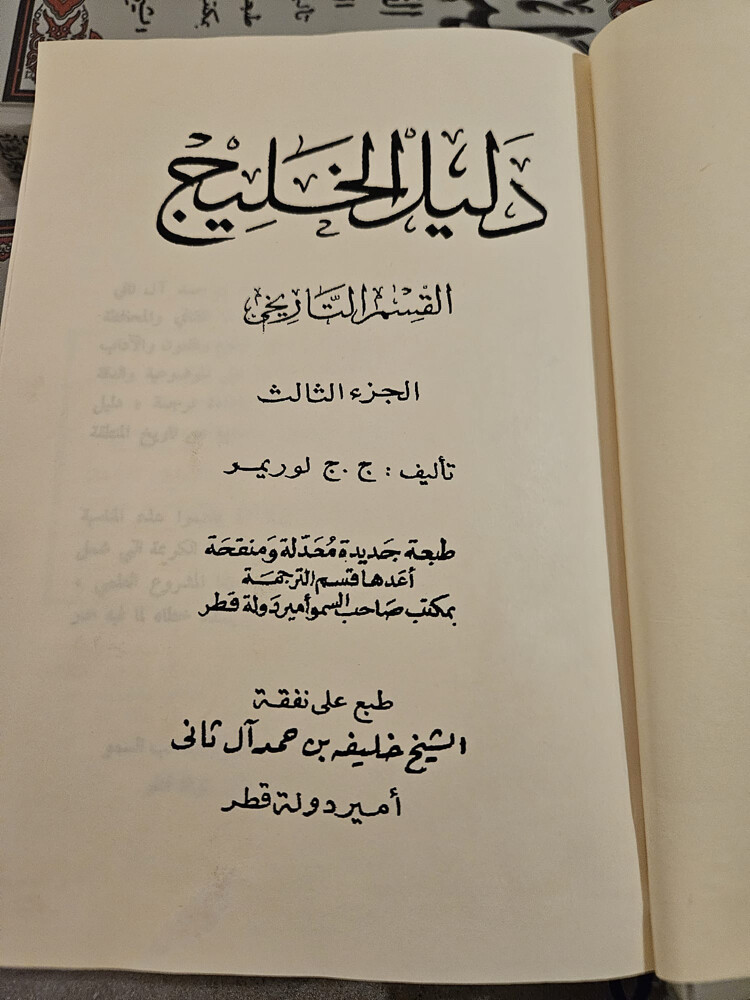 دليل الخليج
القسم التاريخي
الجزء الثالث
تأليف : ج . ج لوريمر
طبعة جديدة مُعَدّلة وَمنقحَة
أعَدها قسم الترجمَة
بمكتب صَاحب السمو أمير دَولة قطر
طبع على نفقة
الشيخ خليفه بن حمد آل ثانى
أمير دولة قطر